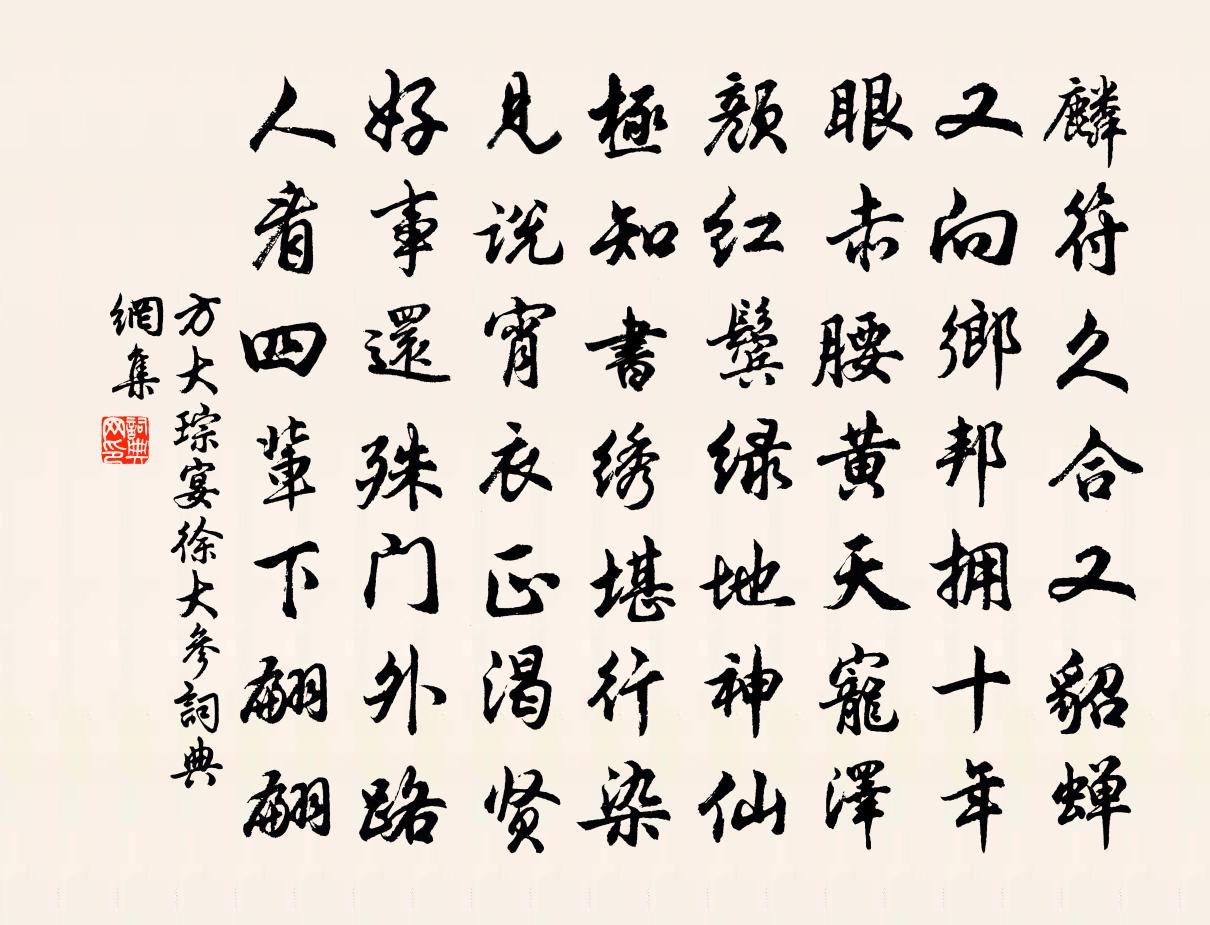 麟符久合又貂蝉
又向鄉邦拥十年
眼赤腰黄天寵澤
颜红鬓绿地神仙
極知書绣堪行染
見说宵衣正渴贤
好事還殊门外路
人看四輩下翩翩
方大琮宴徐大參詞典
網集
詞典网印